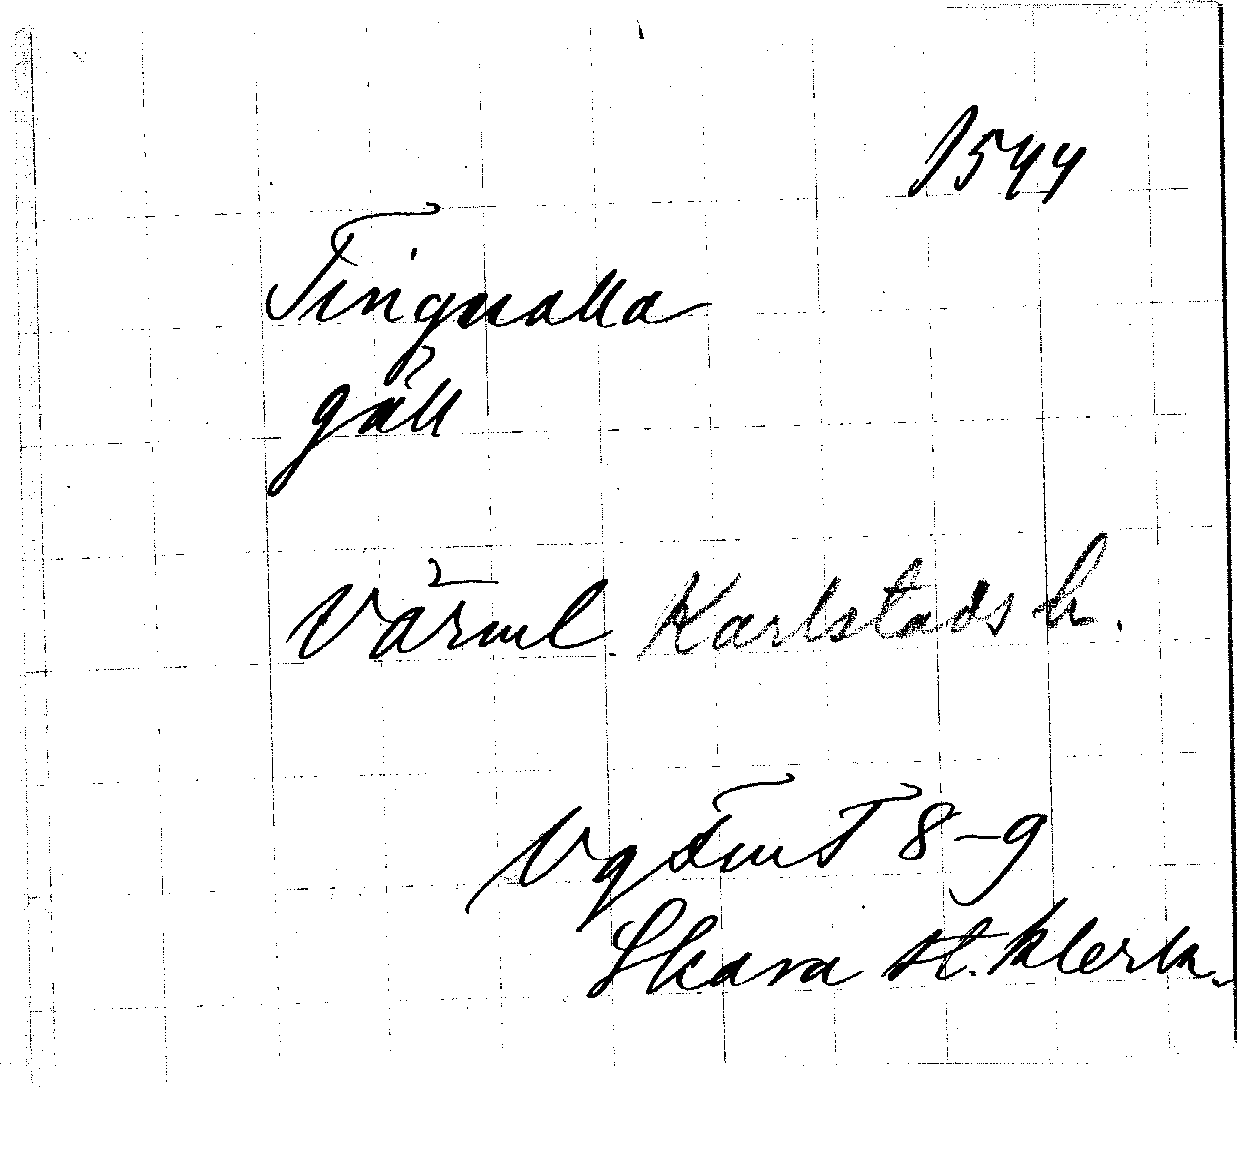 1544
Tingualla
gäll
Värml. Karlstads h.
Vg Fmt T 8-9
Skara st. klerk.